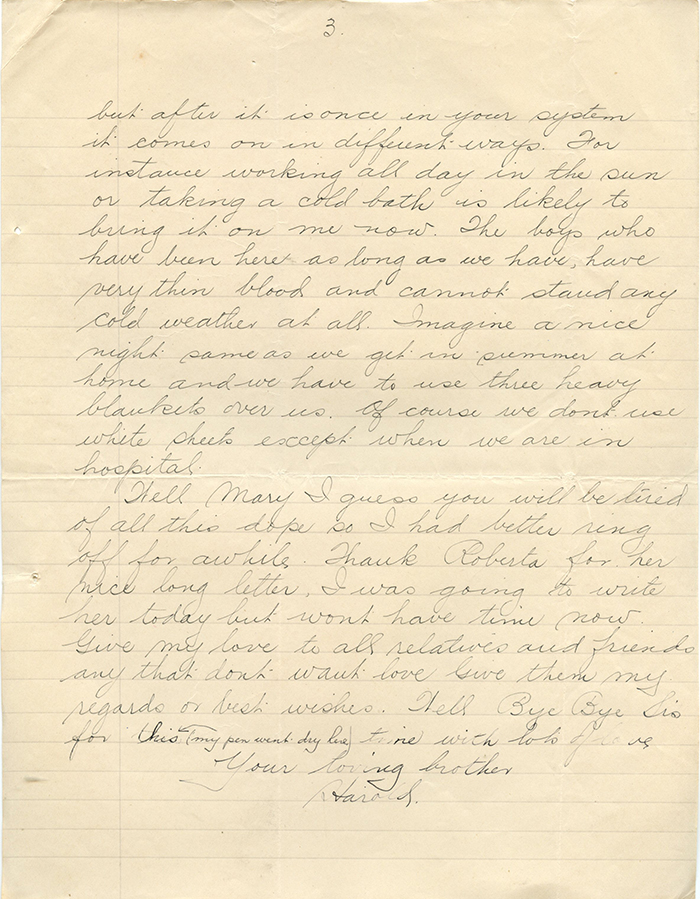 3.
but after it is once in your system
it comes on in different ways. For
instance working all day in the sun
or taking a cold bath is likely to
bring it on me now. The boys who
have been here as long as we have, have
very thin blood and cannot stand any
cold weather at all. Imagine a nice
night same as we get in summer at
home and we have to use three heavy
blankets over us. Of course we dont use
white sheets except when we are in
hospital.
Well Mary I guess you will be tired
of all this dope so I had better ring
off for awhile. Thank Roberta for her
nice long letter, I was going to write
her today but wont have time now.
Give my love to all relatives and friends
any that dont want love Give them my
regards or best wishes. Well Bye Bye Sis
for this (my pen went dry here) time with lots of love
Your loving brother
Harold.